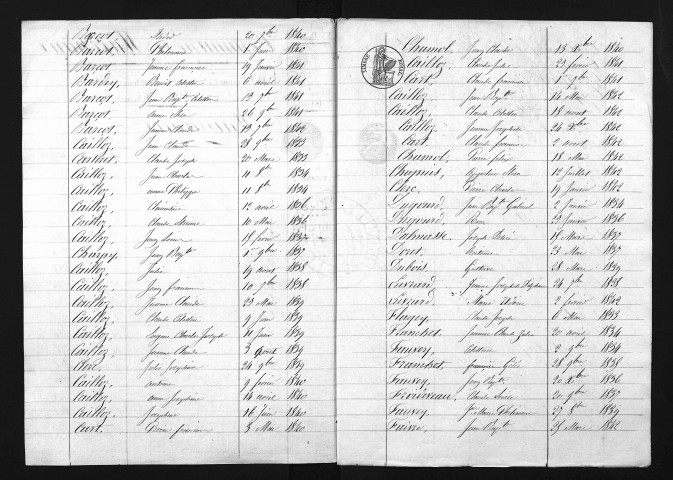 Barcot, Désiré 20 7bre 1840
Barcot, Philomène 1 Juin 1840
Barcot, Jeanne françoise 19 Janvier 1841
Bardey, Benoit Célestin 6 avril 1841
Barcot, Jean Bapt. Célestin 13 9bre 1841
Barcot, 26 9bre 1841
Barcot, 19 7bre 1842
Cailloz, Jean Claude 28 9bre 1833
Claude Joseph 20 Mars 1833
Cailloz, Jean Charles 11 8bre 1834
Cailloz, anne Philippe 11 8bre 1834
Cailloz, Clémentine 12 avril 1836
Cailloz, Claude Etienne 10 Mai 1836
Cailloz, 18 février 1837
Jean Bapt. 1 9bre 1837
Cailloz, Julie 19 avril 1838
Cailloz, Jean françois 10 7bre 1838
Cailloz, Jeanne Claude 23 Mai 1839
Cailloz, Claude Célestin 9 Juin 1839
Cailloz, Eugène Charles Joseph 11 Juin 1839
Cailloz, Jeanne Claude 3 avril 1839
Clerc, Julie Joséphine 24 9bre 1839
Cailloz, antoine 9 février 1840
Cailloz, anne Joséphine 14 avril 1840
Cailloz, Joséphine 16 Juin 1840
Cart, Pierre françois 5 Mai 1840
Chamol, Jean Charles 13 Xbre 1840
Cailloz, Claude Julie 23 février 1841
Cart, Claude françoise 1 9bre 1841
Cailloz, Jean Bapt. 14 Mai 1842
Cailloz, Claude Célestin 18 avril 1842
Cailloz, Jeanne Joséphine 26 Xbre 1842
Cart, Claude françois 2 avril 1842
Chamol, Pierre Félix 18 Mai 1842
12 Juillet 1842
Clerc, Pierre Charles 19 Janvier 1842
Jean Bapt. Gabriel 2 Janvier 1834
Rose 29 Janvier 1836
Dalmasse, Joseph Désiré 18 Mars 1837
Doret, Antoine 23 Mai 1837
Dubois, Gustave 28 Mai 1839
Euvrard, Jeanne Joséphine Delphine 24 7bre 1838
Euvrard, Marie Elvire 2 février 1842
Flagey, Claude Joseph 6 Mai 1833
Franchet, Jeanne Claude Zélie 20 avril 1834
Fauvey, Célestine 2 9bre 1834
Franchet, françois Félix 28 9bre 1835
Fauvey, Jean Bapt. 20 Xbre 1836
Claude Louise 20 9bre 1837
Fauvey, Jne Marie Philomène 27 8bre 1839
Faivre, Jean Bapt. 25 Mars 1842